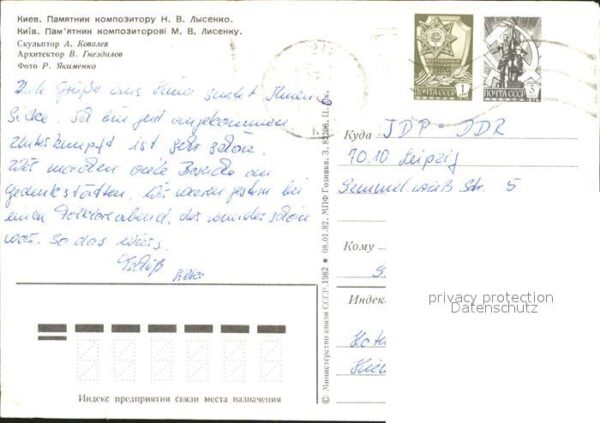 Киев. Памятник композитору Н. В. Лысенко.
Київ. Пам'ятник композиторові М. В. Лисенку.
Скульптор А. Ковалев
Архитектор В. Гнездилов
Фото Р. Якименко
Viele Grüße aus Kiew sendet
Silke. Ich bin gut angekommen
Unterkunft ist sehr schön.
Wir machen viele Besuche an
Gedenkstätten. Wir waren gestern bei
einem Folkloreabend, der wunderschön
war. So das wärs.
Tschüß
Silke
ПОЧТА СССР 1
ПОЧТА СССР
Куда
DDR
7010 Leipzig
Str. 5
Кому
Индекс
privacy protection
Datenschutz
Kiew
© Министерство связи СССР, 1982 • 08.01.82. МПФ Гознака. З.
Индекс предприятия связи места назначения